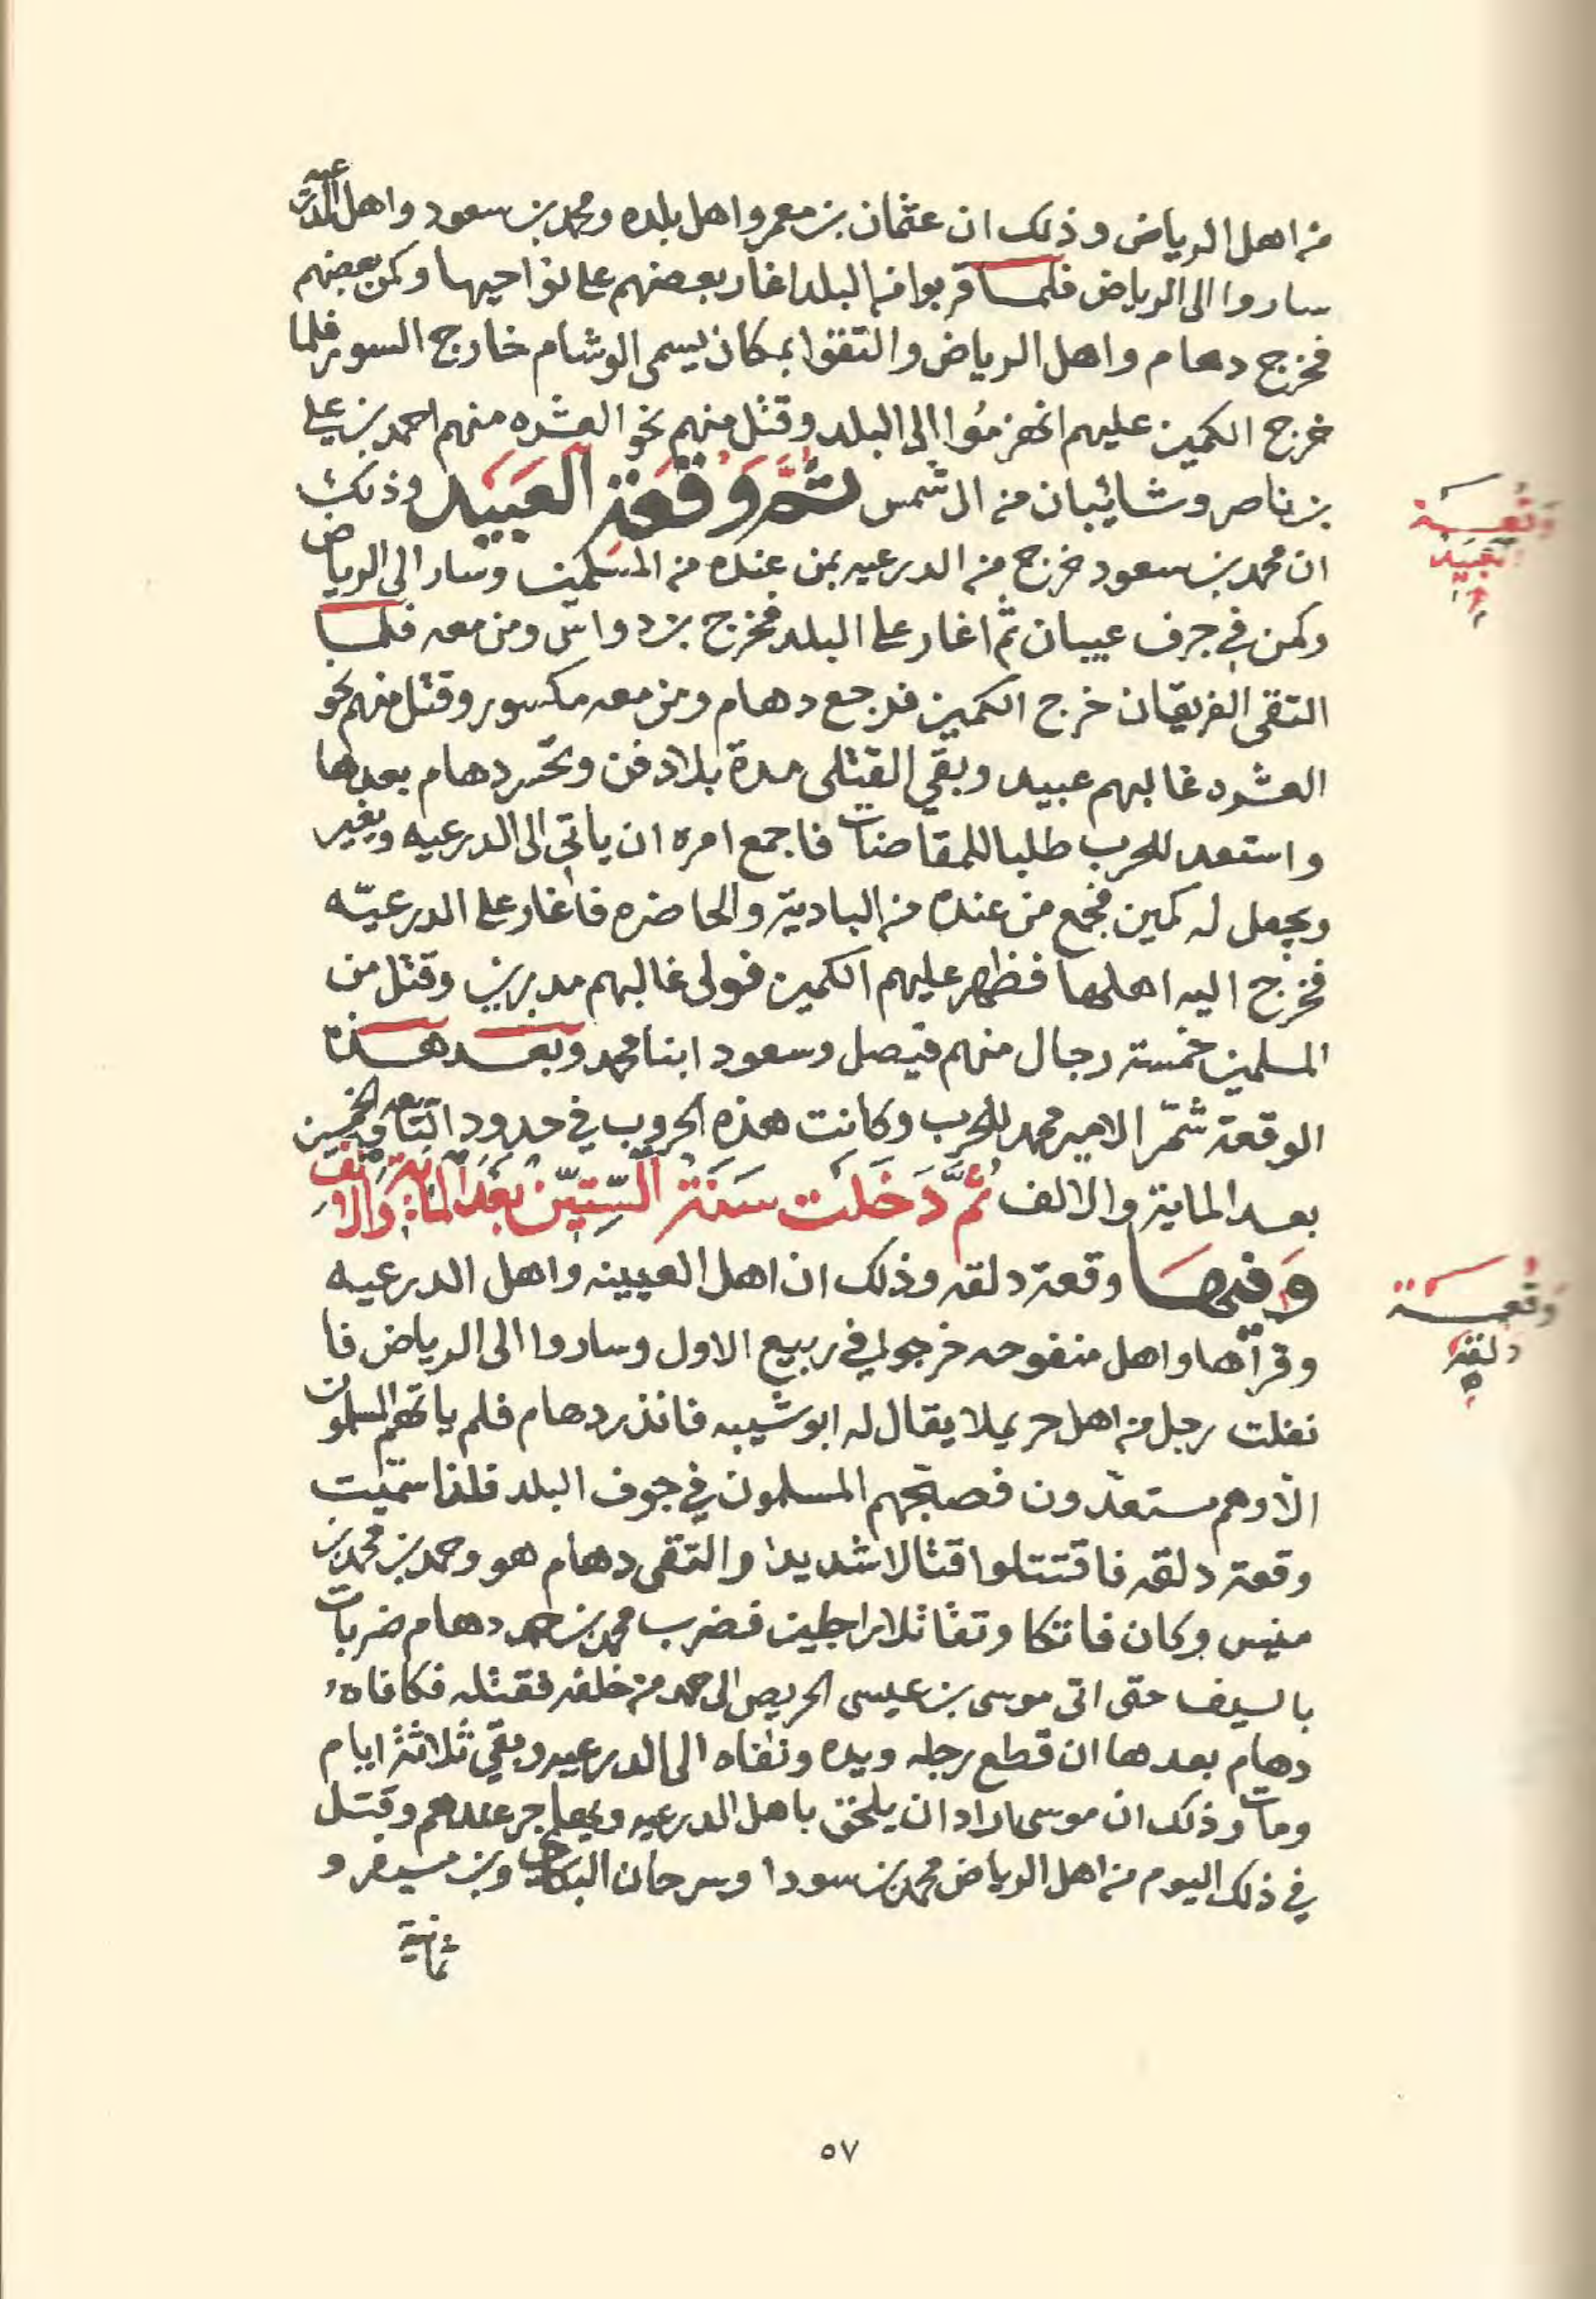 من اهل الرياض وذلك ان عثمان بن معمر واهل بلده ومحمد بن سعود واهل الدرعيه
ساروا الى الرياض فلما قربوا من البلد اغار بعضهم على نواحيها وكمن بعضهم
فخرج دهام واهل الرياض والتقوا بمكان يسمى الوشام خارج السور فلما
خرج الكمين عليهم انهزموا الى البلد وقتل منهم نحو العشره منهم احمد بن علي
بن ناصر وشائبان من ال شمس ثم وقعة العبيد وذلك
ان محمد بن سعود خرج من الدرعيه بمن عنده من المسلمين وسار الى الرياض
وكمن في جرف عبيان ثم اغار على البلد فخرج بن دواس ومن معه فلما
التقى الفريقان خرج الكمين فرجع دهام ومن معه مكسور وقتل منهم نحو
العشره غالبهم عبيد وبقي القتلى مدة بلا دفن وتحسر دهام بعدها
واستعد للحرب طلبا للمقاضات فاجمع امره ان ياتي الى الدرعيه ويغير
ويجعل له كمين فجمع من عنده من البادية والحاضره فاغار على الدرعيّه
فخرج اليه اهلها فظهر عليهم الكمين فولى غالبهم مدبرين وقتل من
المسلمين خمسة رجال منهم فيصل وسعود ابنا محمد وبعد هذه
الوقعة شمّر الامير محمد للحرب وكانت هذه الحروب في حدود التاسعه والخمسين
بعد الماية والالف ثم دخلت سنة الستين بعد الماية والالف
وفيها وقعة دلقه وذلك ان اهل العيينه واهل الدرعيه
وقرآها واهل منفوحه خرجوا في ربيع الاول وساروا الى الرياض فا
نفلت رجل من اهل حريملا يقال له ابو شيبه فانذر دهام فلم ياتهم المسلمون
الا وهم مستعدّون فصبّحهم المسلمون في جوف البلد فلذا سمّيت
وقعة دلقه فاقتتلوا قتالا شديدا والتقى دهام هو وحمد بن محمد بن
منيس وكان فاتكا وتقاتلا راجلين فضرب محمد بن حمد دهام ضربات
بالسيف حتى اتى موسى بن عيسى الحريص الى حمد من خلفه فقتله فكافاه
دهام بعدها ان قطع رجله ويده ونفاه الى الدرعيه وبقي ثلاثة ايام
ومات وذلك ان موسى اراد ان يلحق باهل الدرعيه ويهاجر عندهم وقتل
في ذلك اليوم من اهل الرياض محمد بن سودا وسرحان البكاي وبن مسيفر و
ثمانية
وقعة
العبيد
وقعة
دلقه
٥٧